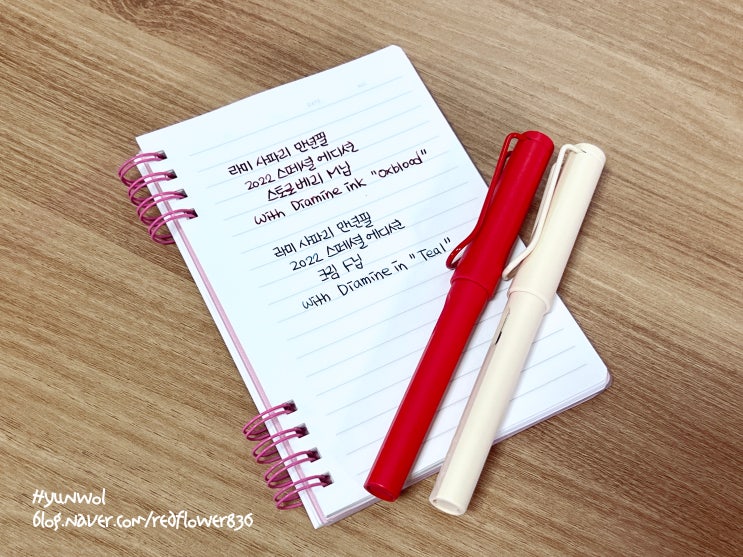 라미 사파리 만년필
2022 스페셜 에디션
스트로베리 M닙
with Diamine ink "Oxblood"
라미 사파리 만년필
2022 스페셜 에디션
크림 F닙
with Diamine in "Teal"
Hyunwol
blog.naver.com/redflower836